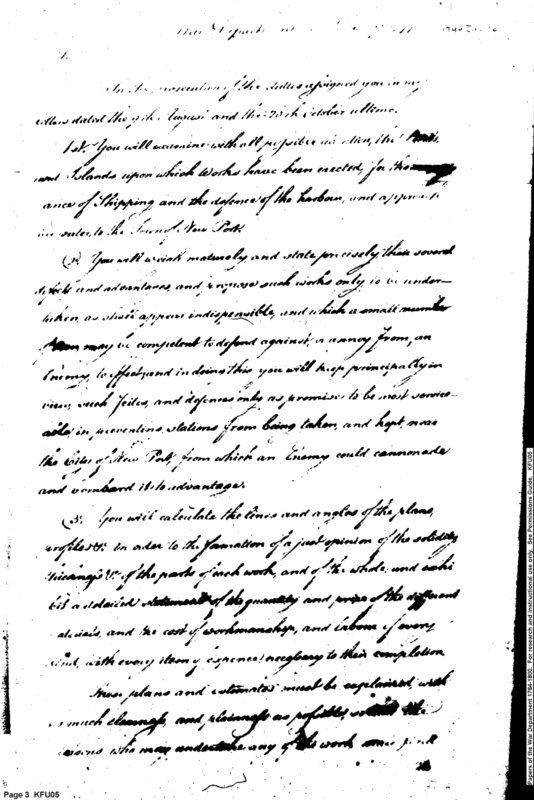 War Depart
In the prosecution of the duties assigned you in my
letters dated the 9th August and the 20th October ultimo.
1st. You will examine with all possible attention, the Points
and Islands upon which Works have been erected, for the
ance of Shipping and the defence of the harbour, and approach
to the Town of New York
(2. You will weigh maturely, and state precisely their several
defects and advantages, and propose such works only to be under-
taken, as shall appear indispensible, and which a small number
may be competent to defend against, or annoy from, an
Enemy, to effect; and in doing this you will keep principally in
view, such scites, and defences only as promise to be most service-
able, in preventing stations from being taken, and kept, near
the City of New York, from which an Enemy could cannonade
and bombard it to advantage.
(3. You will calculate the lines and angles of the plans,
profiles &c. in order to the formation of a just opinion of the solidity
thickness &c. of the parts of each work, and of the whole; and exhi
bit a detailed statement of the quantity and price of the different
materials, and the cost of workmanship, and labour of every
kind, with every item of expence necessary to their completion
These plans and estimates must be explained, with
as much clearness, and plainness as possible, the
persons who may undertake any of the work
Page 3 KFU05
Papers of the War Department 1784-1800. For research and instructional use only. See Permissions Guide. KFU05